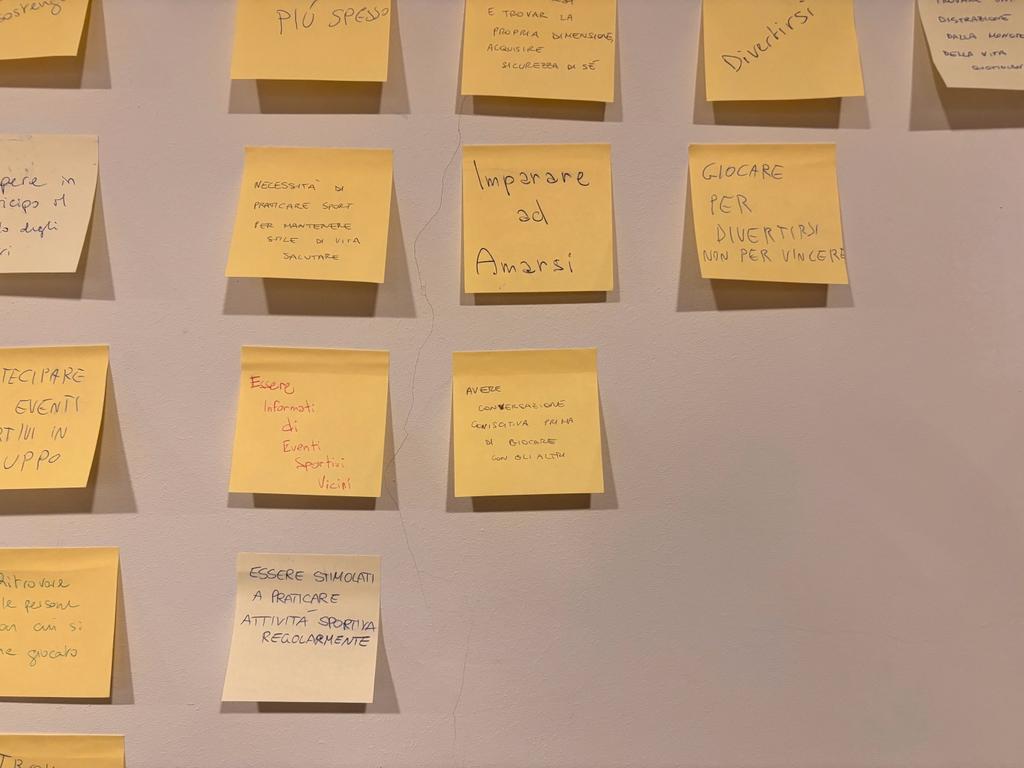 sostenge
PIÙ SPESSO
E TROVAR LA
PROPRIA DIMENSIONE,
ACQUISIRE
SICUREZZA DI SÉ
Divertirsi
DISTRAZIONE
DALLA
DELLA VITA
pere in
cipo il
degli
ri
NECESSITÀ DI
PRATICARE SPORT
PER MANTENERE
STILE DI VITA
SALUTARE
Imparare
ad
Amarsi
GIOCARE
PER
DIVERTIRSI
NON PER VINCERE
TECIPARE
EVENTI
RTIVI IN
UPPO
Essere
Informati
di
Eventi
Sportivi
Vicini
AVERE
CONVERSAZIONE
CONOSCITIVA PRIMA
DI GIOCARE
CON GLI ALTRI
Ritrovare
le persone
on cui si
ne giocato
ESSERE STIMOLATI
A PRATICARE
ATTIVITÀ SPORTIVA
REGOLARMENTE